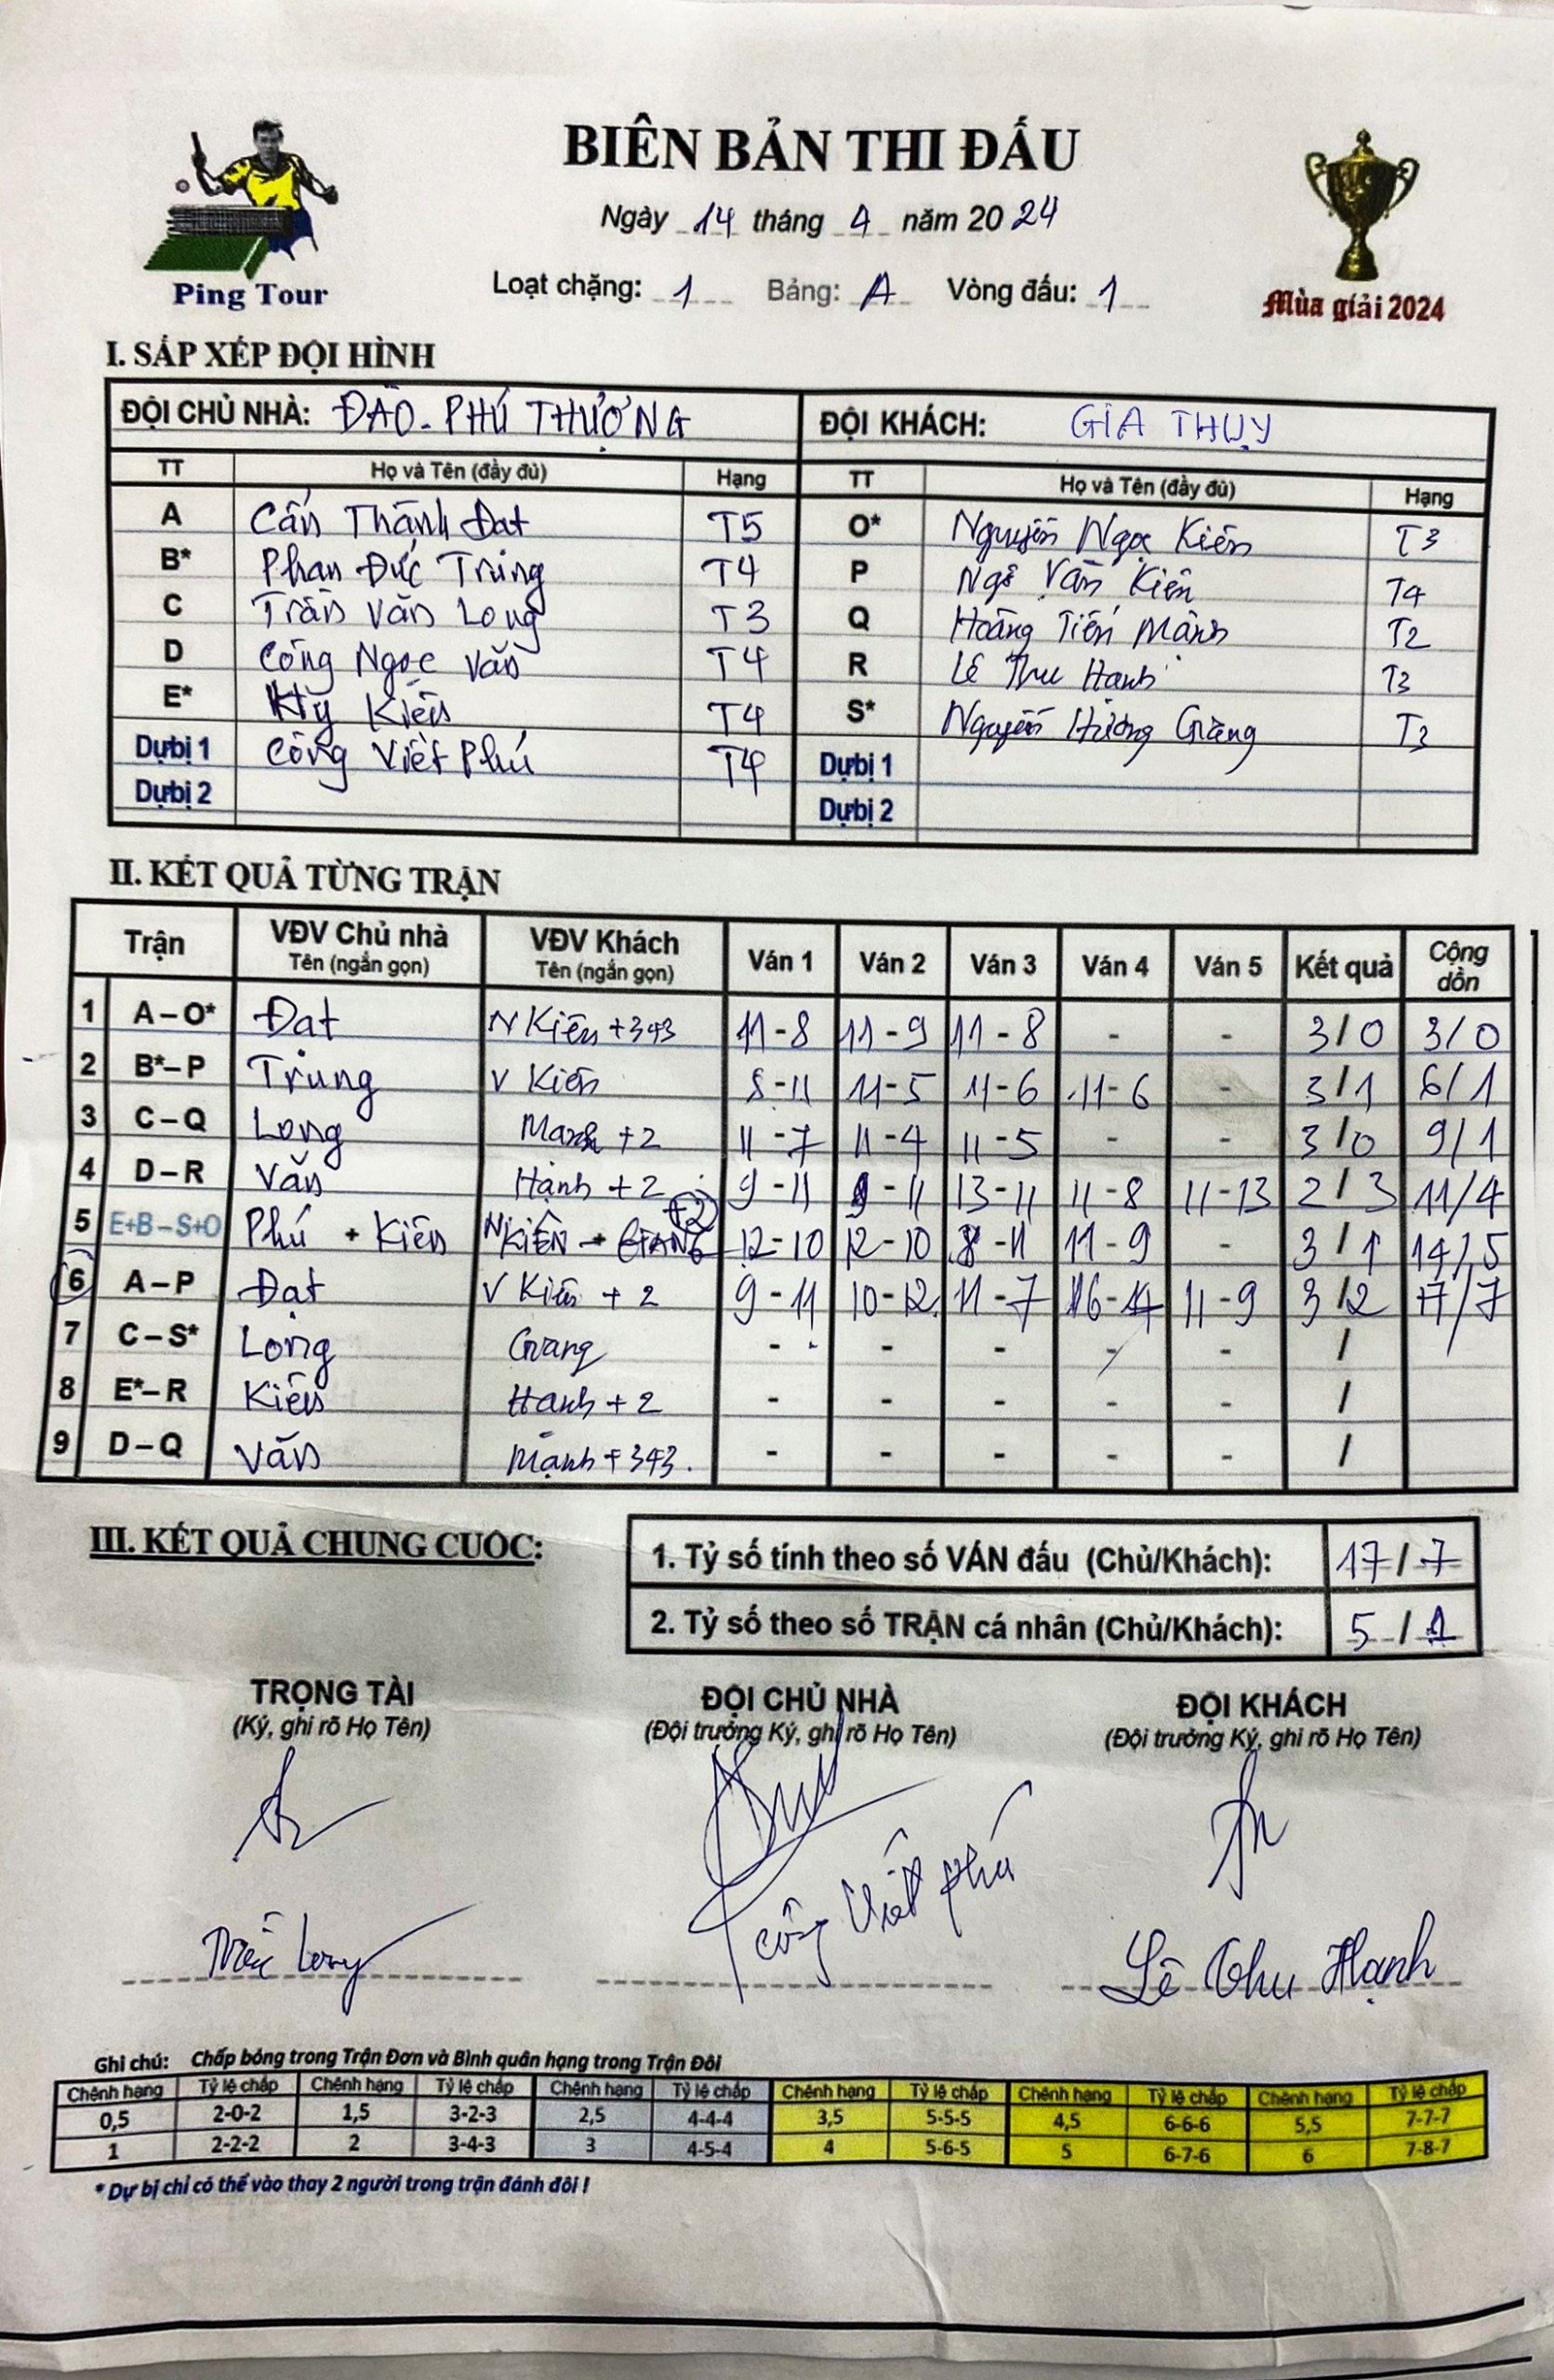 BIÊN BẢN THI ĐẤU
Ping Tour
Ngày 14 tháng 4 năm 2024
Loạt chặng: 1 Bảng: A Vòng đấu: 1
Mùa giải 2024
I. SẮP XẾP ĐỘI HÌNH
ĐỘI CHỦ NHÀ: ĐÀO - PHÚ THƯỢNG ĐỘI KHÁCH: GIA THỤY
TT Họ và Tên (đầy đủ) Hạng TT Họ và Tên (đầy đủ) Hạng
A Cấn Thành Đạt T5 O* Nguyễn Ngọc Kiên T3
B* Phan Đức Trung T4 P Ngô Văn Kiên T4
C Trần Văn Long T3 Q Hoàng Tiến Mạnh T2
D Công Ngọc Văn T4 R Lê Thu Hạnh T3
E* Kiên T4 S* Nguyễn Hương Giang T3
Dự bị 1 Công Viết Phú T4 Dự bị 1
Dự bị 2 Dự bị 2
II. KẾT QUẢ TỪNG TRẬN
Trận VĐV Chủ nhà Tên (ngắn gọn) VĐV Khách Tên (ngắn gọn) Ván 1 Ván 2 Ván 3 Ván 4 Ván 5 Kết quả Cộng dồn
1 A – O* Đạt N Kiên +343 11-8 11-9 11-8 - - 3/0 3/0
2 B* – P Trung V Kiên 8-11 11-5 11-6 11-6 - 3/1 6/1
3 C – Q Long Mạnh +2 11-7 11-4 11-5 - - 3/0 9/1
4 D – R Văn Hạnh +2 9-11 9-11 13-11 11-8 11-13 2/3 11/4
5 E+B – S+O Phú + Kiên N KIÊN + GIANG +2 12-10 12-10 8-11 11-9 - 3/1 14/5
6 A – P Đạt V Kiên + 2 9-11 10-12 11-7 16-14 11-9 3/2 17/7
7 C – S* Long Giang - - - - - /
8 E* – R Kiên Hạnh + 2 - - - - - /
9 D – Q Văn Mạnh + 343. - - - - - /
III. KẾT QUẢ CHUNG CUỘC:
1. Tỷ số tính theo số VÁN đấu (Chủ/Khách): 17/7
2. Tỷ số theo số TRẬN cá nhân (Chủ/Khách): 5/1
TRỌNG TÀI ĐỘI CHỦ NHÀ ĐỘI KHÁCH
(Ký, ghi rõ Họ Tên) (Đội trưởng Ký, ghi rõ Họ Tên) (Đội trưởng Ký, ghi rõ Họ Tên)
Trần Long Công Viết Phú Lê Thu Hạnh
Ghi chú: Chấp bóng trong Trận Đơn và Bình quân hạng trong Trận Đôi
Chênh hạng Tỷ lệ chấp Chênh hạng Tỷ lệ chấp Chênh hạng Tỷ lệ chấp Chênh hạng Tỷ lệ chấp Chênh hạng Tỷ lệ chấp Chênh hạng Tỷ lệ chấp
0,5 2-0-2 1,5 3-2-3 2,5 4-4-4 3,5 5-5-5 4,5 6-6-6 5,5 7-7-7
1 2-2-2 2 3-4-3 3 4-5-4 4 5-6-5 5 6-7-6 6 7-8-7
* Dự bị chỉ có thể vào thay 2 người trong trận đánh đôi !